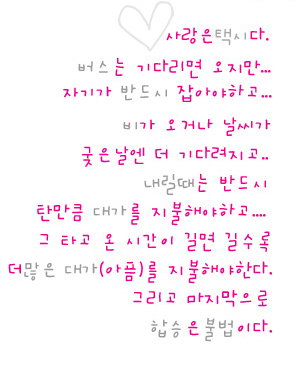 사랑은택시다.
버스는 기다리면 오지만...
자기가 반드시 잡아야하고...
비가 오거나 날씨가
궂은날엔 더 기다려지고..
내릴때는 반드시
탄만큼 대가를 지불해야하고....
그 타고 온 시간이 길면 길수록
더많은 대가(아픔)를 지불해야한다.
그리고 마지막으로
합승은불법이다.